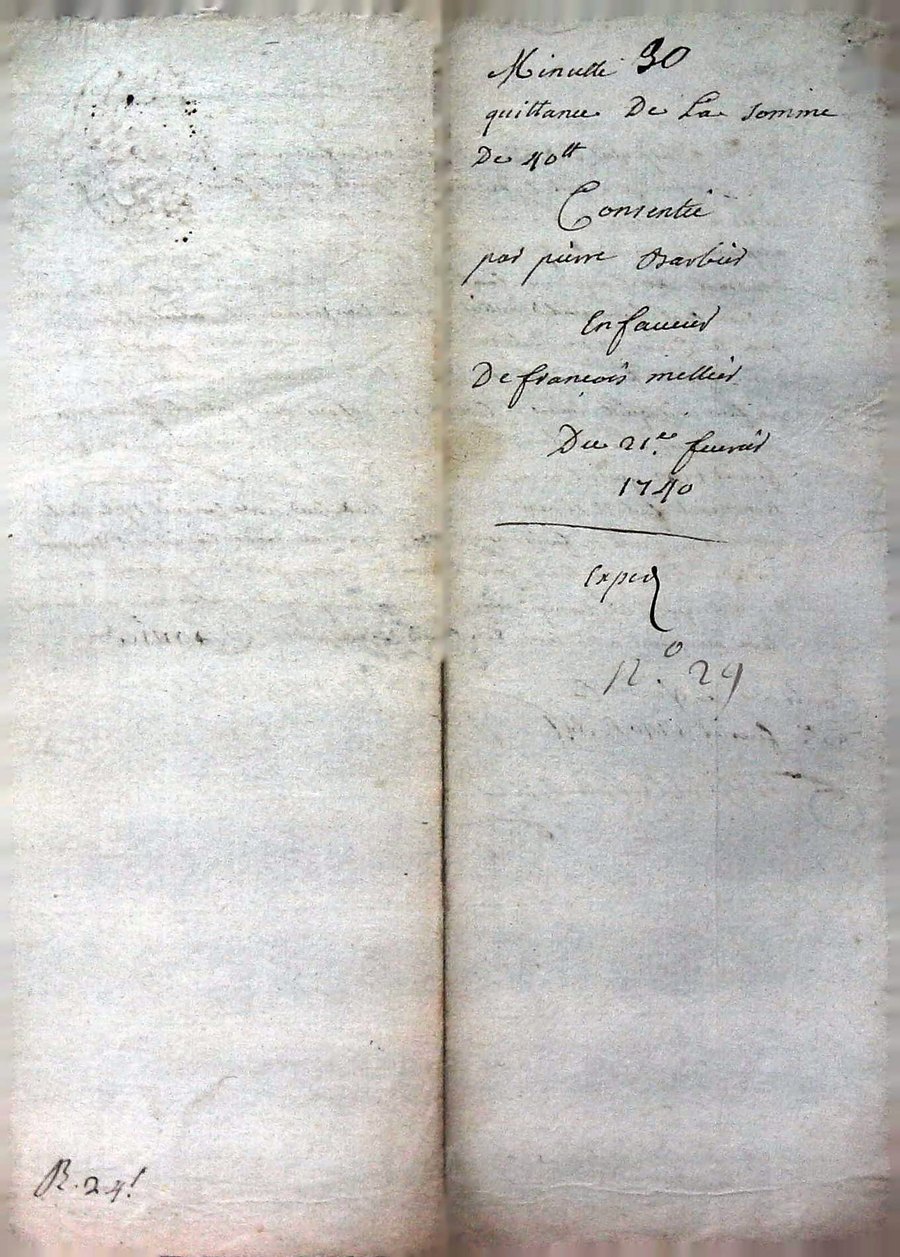 Minutte 30
quittance De La somme
De 40tt
Consentie
par pierre Barbier
En faveur
De françois mellier
Du 21.e fevrier
1740
Exped
N.o 29
R. 24!